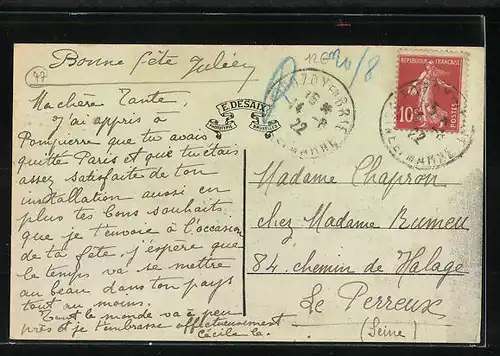 Bonne fête Juliey
77
Ma chère Tante,
J'ai appris à
Pompierre que tu avais
quitté Paris et que tu étais
assez satisfaite de ton
installation aussi en
plus des bons souhaits
que je t'envoie à l'occasion
de ta fête, j'espère que
le temps va se mettre
au beau dans ton pays
tout au moins.
Tout le monde va à peu
près et je t'embrasse affectueusement
Cécile
E. DESAIX
BRUXELLES
OZOY EN BRIE
15 *
14 - 8
22
RÉPUBLIQUE FRANÇAISE
10c
POSTES
Madame Chapron
chez Madame Rumeu
84 chemin de Halage
Le Perreux
(Seine)